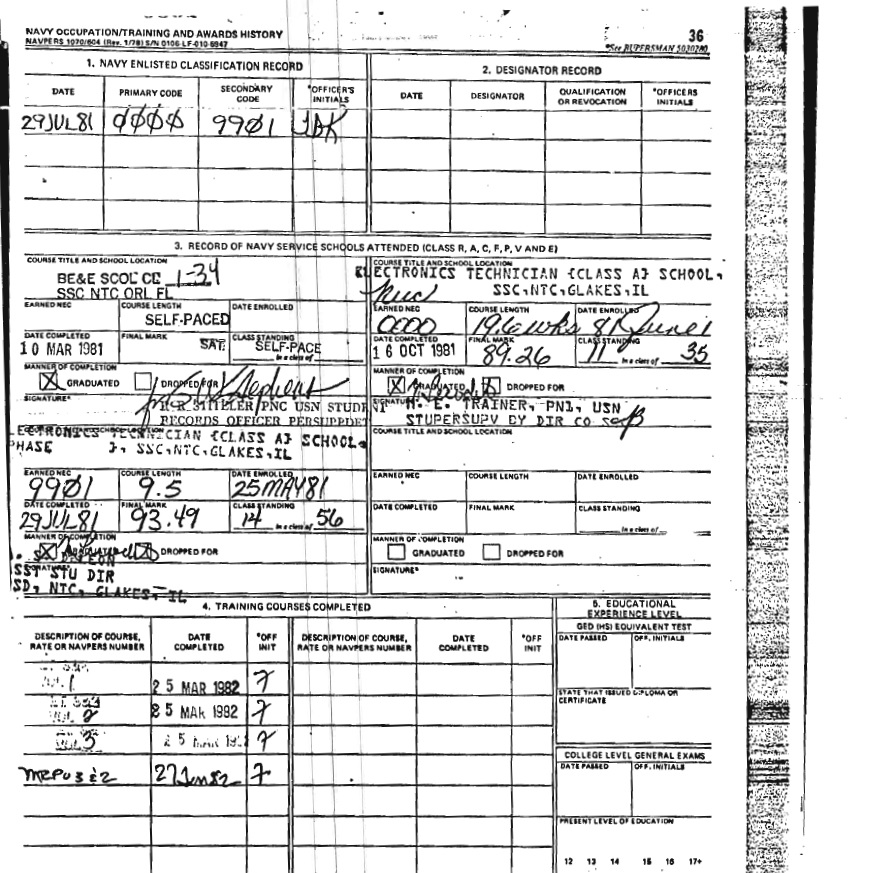 NAVY OCCUPATION/TRAINING AND AWARDS HISTORY
NAVPERS 1070/604 (Rev. 1/78) S/N 0106-LF-010-6947
36
*See BUPERSMAN 5030280
1. NAVY ENLISTED CLASSIFICATION RECORD
2. DESIGNATOR RECORD
DATE PRIMARY CODE SECONDARY CODE *OFFICER'S INITIALS
DATE DESIGNATOR QUALIFICATION OR REVOCATION *OFFICERS INITIALS
29JUL81 0000 9901
3. RECORD OF NAVY SERVICE SCHOOLS ATTENDED (CLASS R, A, C, F, P, V AND E)
COURSE TITLE AND SCHOOL LOCATION
BE&E SCOL CE 1-34
SSC NTC ORL FL
EARNED NEC COURSE LENGTH DATE ENROLLED
SELF-PACED
DATE COMPLETED FINAL MARK CLASS STANDING
10 MAR 1981 SAT. SELF-PACE
In a class of
MANNER OF COMPLETION
X GRADUATED DROPPED FOR
SIGNATURE*
PNC USN STUDENT
RECORDS OFFICER PERSUPPDET
COURSE TITLE AND SCHOOL LOCATION
ELECTRONICS TECHNICIAN (CLASS A) SCHOOL,
SSC,NTC,GLAKES,IL
EARNED NEC COURSE LENGTH DATE ENROLLED
0000 19.6 wks
DATE COMPLETED FINAL MARK CLASS STANDING
16 OCT 1981 89.26 11 35
In a class of
MANNER OF COMPLETION
X GRADUATED DROPPED FOR
SIGNATURE*
H. E. TRAINER, PN1, USN
STUPERSUPV BY DIR CO
ELECTRONICS TECHNICIAN (CLASS A) SCHOOL,
PHASE I, SSC,NTC,GLAKES,IL
EARNED NEC COURSE LENGTH DATE ENROLLED
9901 9.5 25MAY81
DATE COMPLETED FINAL MARK CLASS STANDING
29JUL81 93.49 14 In a class of 56
MANNER OF COMPLETION
X GRADUATED DROPPED FOR
SIGNATURE*
SST STU DIR
SD, NTC, GLAKES, IL
COURSE TITLE AND SCHOOL LOCATION
EARNED NEC COURSE LENGTH DATE ENROLLED
DATE COMPLETED FINAL MARK CLASS STANDING
In a class of
MANNER OF COMPLETION
GRADUATED DROPPED FOR
SIGNATURE*
4. TRAINING COURSES COMPLETED
5. EDUCATIONAL EXPERIENCE LEVEL
DESCRIPTION OF COURSE, RATE OR NAVPERS NUMBER DATE COMPLETED *OFF INIT
DESCRIPTION OF COURSE, RATE OR NAVPERS NUMBER DATE COMPLETED *OFF INIT
GED (HS) EQUIVALENT TEST
DATE PASSED OFF. INITIALS
1 25 MAR 1982 7
2 25 MAR 1982 7
STATE THAT ISSUED DIPLOMA OR CERTIFICATE
3 25 MAR 7
COLLEGE LEVEL GENERAL EXAMS
DATE PASSED OFF. INITIALS
MRPO 3 & 2 27 Jan 82 7
PRESENT LEVEL OF EDUCATION
12 13 14 15 16 17+